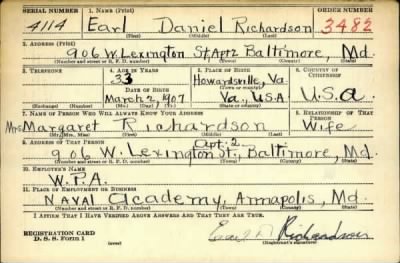 SERIAL NUMBER 1. NAME (Print) ORDER NUMBER
4114 Earl Daniel Richardson 3482
(First) (Middle) (Last)
2. ADDRESS (Print)
906 W. Lexington St, Apt 2 Baltimore, Md.
(Number and street or R. F. D. number) (Town) (County) (State)
3. TELEPHONE 4. AGE IN YEARS 5. PLACE OF BIRTH 6. COUNTRY OF CITIZENSHIP
33 Howardsville, Va.
DATE OF BIRTH (Town or county)
March 2, 1907 Va., U.S.A U.S.a.
(Exchange) (Number) (Mo.) (Day) (Yr.) (State or country)
7. NAME OF PERSON WHO WILL ALWAYS KNOW YOUR ADDRESS 8. RELATIONSHIP OF THAT PERSON
Mrs Margaret Richardson Wife
(Mr., Mrs., Miss) (First) (Middle) (Last)
9. ADDRESS OF THAT PERSON Apt. 2
906 W. Lexington St., Baltimore, Md.
(Number and street or R. F. D. number) (Town) (County) (State)
10. EMPLOYER'S NAME
W.P.A.
11. PLACE OF EMPLOYMENT OR BUSINESS
Naval Academy, Annapolis, Md.
(Number and street or R. F. D. number) (Town) (County) (State)
I AFFIRM THAT I HAVE VERIFIED ABOVE ANSWERS AND THAT THEY ARE TRUE.
REGISTRATION CARD
D. S. S. Form 1 Earl D Richardson
(Registrant's signature)